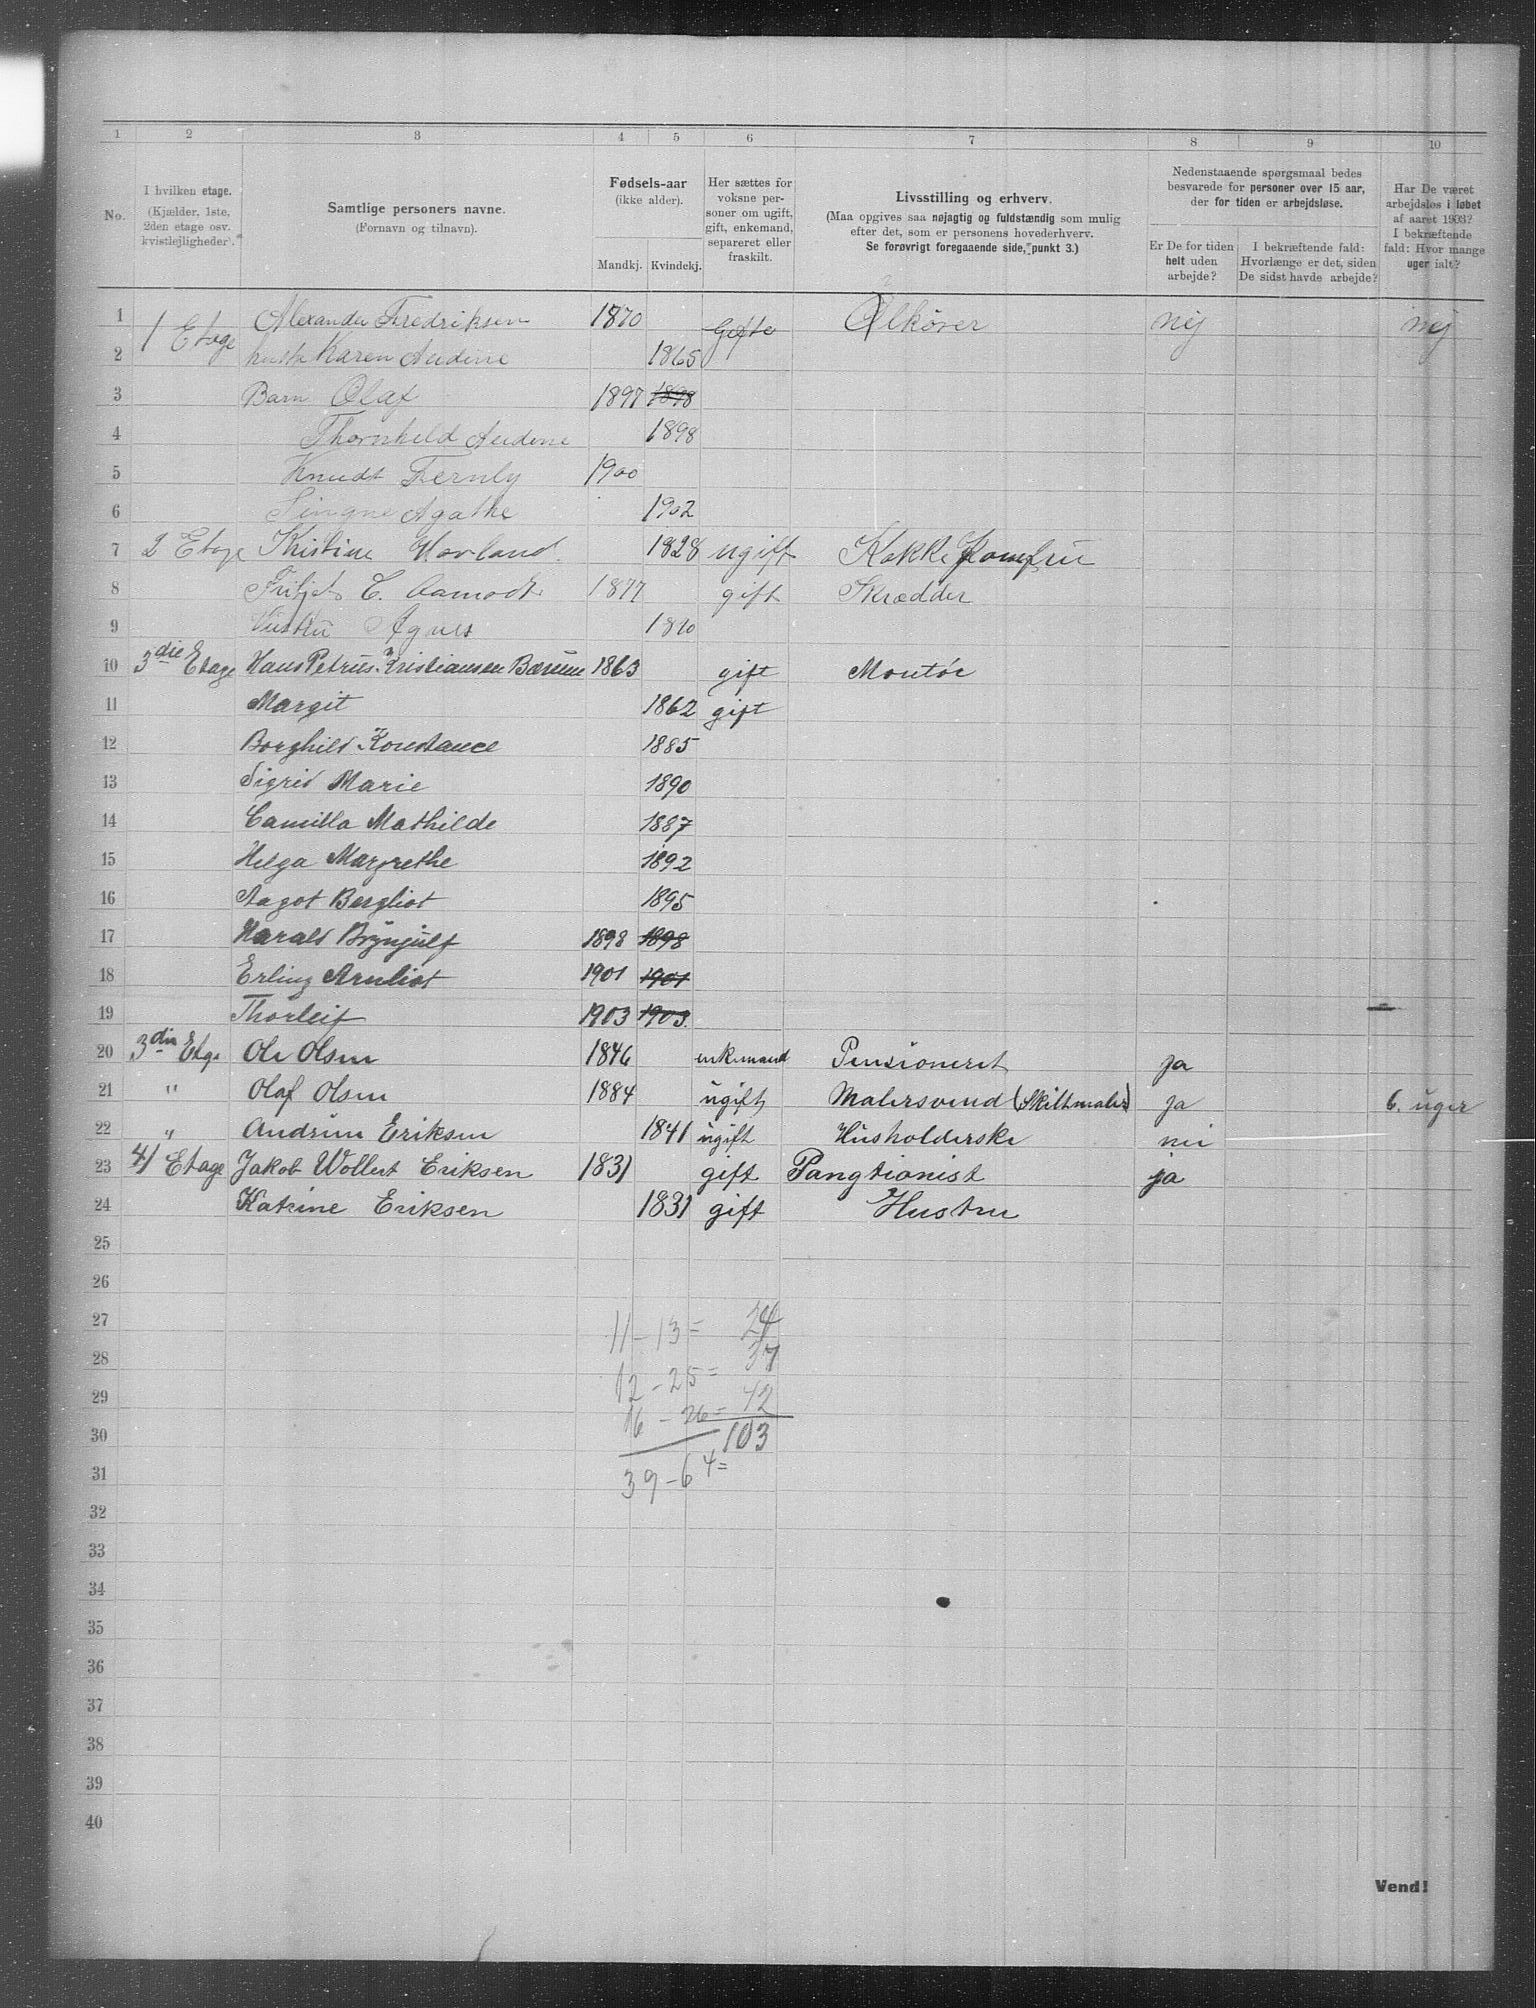 1 2 3 4 5 6 7 8 9 10
No.
I hvilken etage.
(Kjælder, 1ste,
2den etage osv.
kvistlejligheder).
Samtlige personers navne.
(Fornavn og tilnavn).
Fødsels-aar
(ikke alder).
Mandkj. Kvindekj.
Her sættes for
voksne per-
soner om ugift,
gift, enkemand,
separeret eller
fraskilt.
Livsstilling og erhverv.
(Maa opgives saa nøjagtig og fuldstændig som mulig
efter det, som er personens hovederhverv.
Se forøvrigt foregaaende side, punkt 3.)
Nedenstaaende spørgsmaal bedes
besvarede for personer over 15 aar,
der for tiden er arbejdsløse.
Er De for tiden
helt uden
arbejde?
I bekræftende fald:
Hvorlænge er det, siden
De sidst havde arbejde?
Har De været
arbejdsløs i løbet
af aaret 1903?
I bekræftende
fald: Hvor mange
uger ialt?
1 1 Etage Alexander Fredriksen 1870 Gifte Ølkører nej nej
2 Karen Andine 1865
3 Barn Olaf 1897 1898
4 Thornhild Andine 1898
5 Knudt Fernly 1900
6 Singne Agathe 1902
7 2 Etage Kristine Havland. 1828 ugift Kokke Jomfru
8 Fritjof C. Aamodt 1877 gift Skrædder
9 Hustru Agnes 1870
10 3die Etage Hans Petrus Kristiansen Bærum 1863 gift Montør
11 Margit 1862 gift
12 Borghild Konstance 1885
13 Sigrid Marie 1890
14 Camilla Mathilde 1887
15 Helga Margrethe 1892
16 Aagot Bergliot 1895
17 Harald Brynjulf 1898 1898
18 Erling Arnliot 1901 1901
19 Thorleif 1903 1903.
20 3die Etge Ole Olsen 1846 enkemand Pensioneret ja
21 " Olaf Olsen 1884 ugift Malersvend (Skiltmaler) ja 6. uger
22 " Andrine Eriksen 1841 ugift Husholderske nei
23 4 Etage Jakob Wollert Eriksen 1831 gift Pangtionist ja
24 Katrine Eriksen 1831 gift Hustru
25
26
27 11 - 13 = 24
28 12 - 25 = 37
29 16 - 26 = 42
30 103
31 39 - 64 =
32
33
34
35
36
37
38
39
40
Vend!